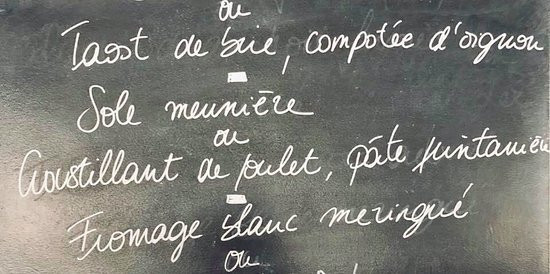 ou
Toast de brie, compotée d'oignon
-
Sole meunière
ou
Croustillant de poulet, pâte printanière
-
Fromage blanc meringué
ou